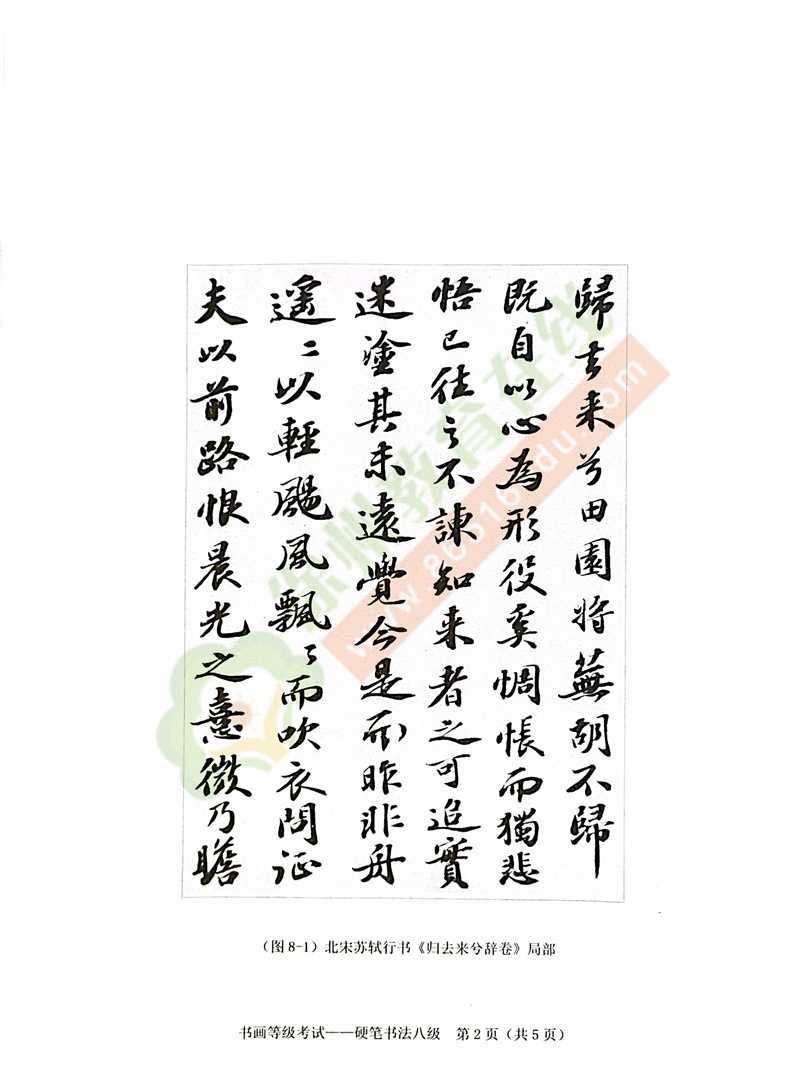 歸去来兮田園将蕪胡不歸
既自以心為形役奚惆悵而獨悲
悟已往之不諫知来者之可追實
迷塗其未遠覺今是而昨非舟
遥〻以輕颺風飄〻而吹衣問征
夫以前路恨晨光之熹微乃瞻
徐州教育在线
www.860516edu.com
（图8-1）北宋苏轼行书《归去来兮辞卷》局部
书画等级考试——硬笔书法八级 第2页（共5页）